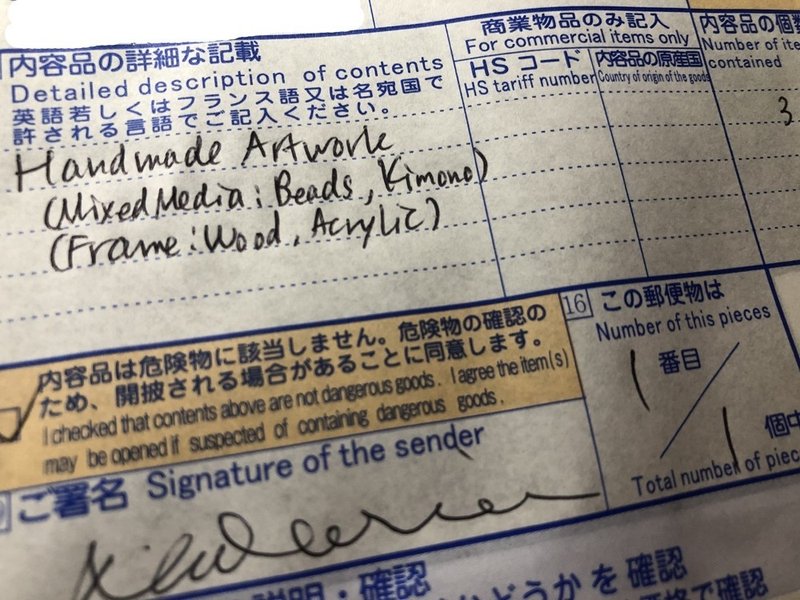 内容品の詳細な記載
Detailed description of contents
英語若しくはフランス語又は名宛国で
許される言語でご記入ください。
Handmade Artwork
(Mixed Media: Beads, Kimono)
(Frame: Wood, Acrylic)
商業物品のみ記入
For commercial items only
HSコード
HS tariff number
内容品の原産国
Country of origin of the goods
内容品の個数
Number of
contained
3
内容品は危険物に該当しません。危険物の確認の
ため、開披される場合があることに同意します。
I checked that contents above are not dangerous goods. I agree the item(s)
may be opened if suspected of containing dangerous goods.
ご署名 Signature of the sender
16 この郵便物は
Number of this pieces
1 番目
/
1 個中
Total number of
説明・確認
かどうかを確認
で確認